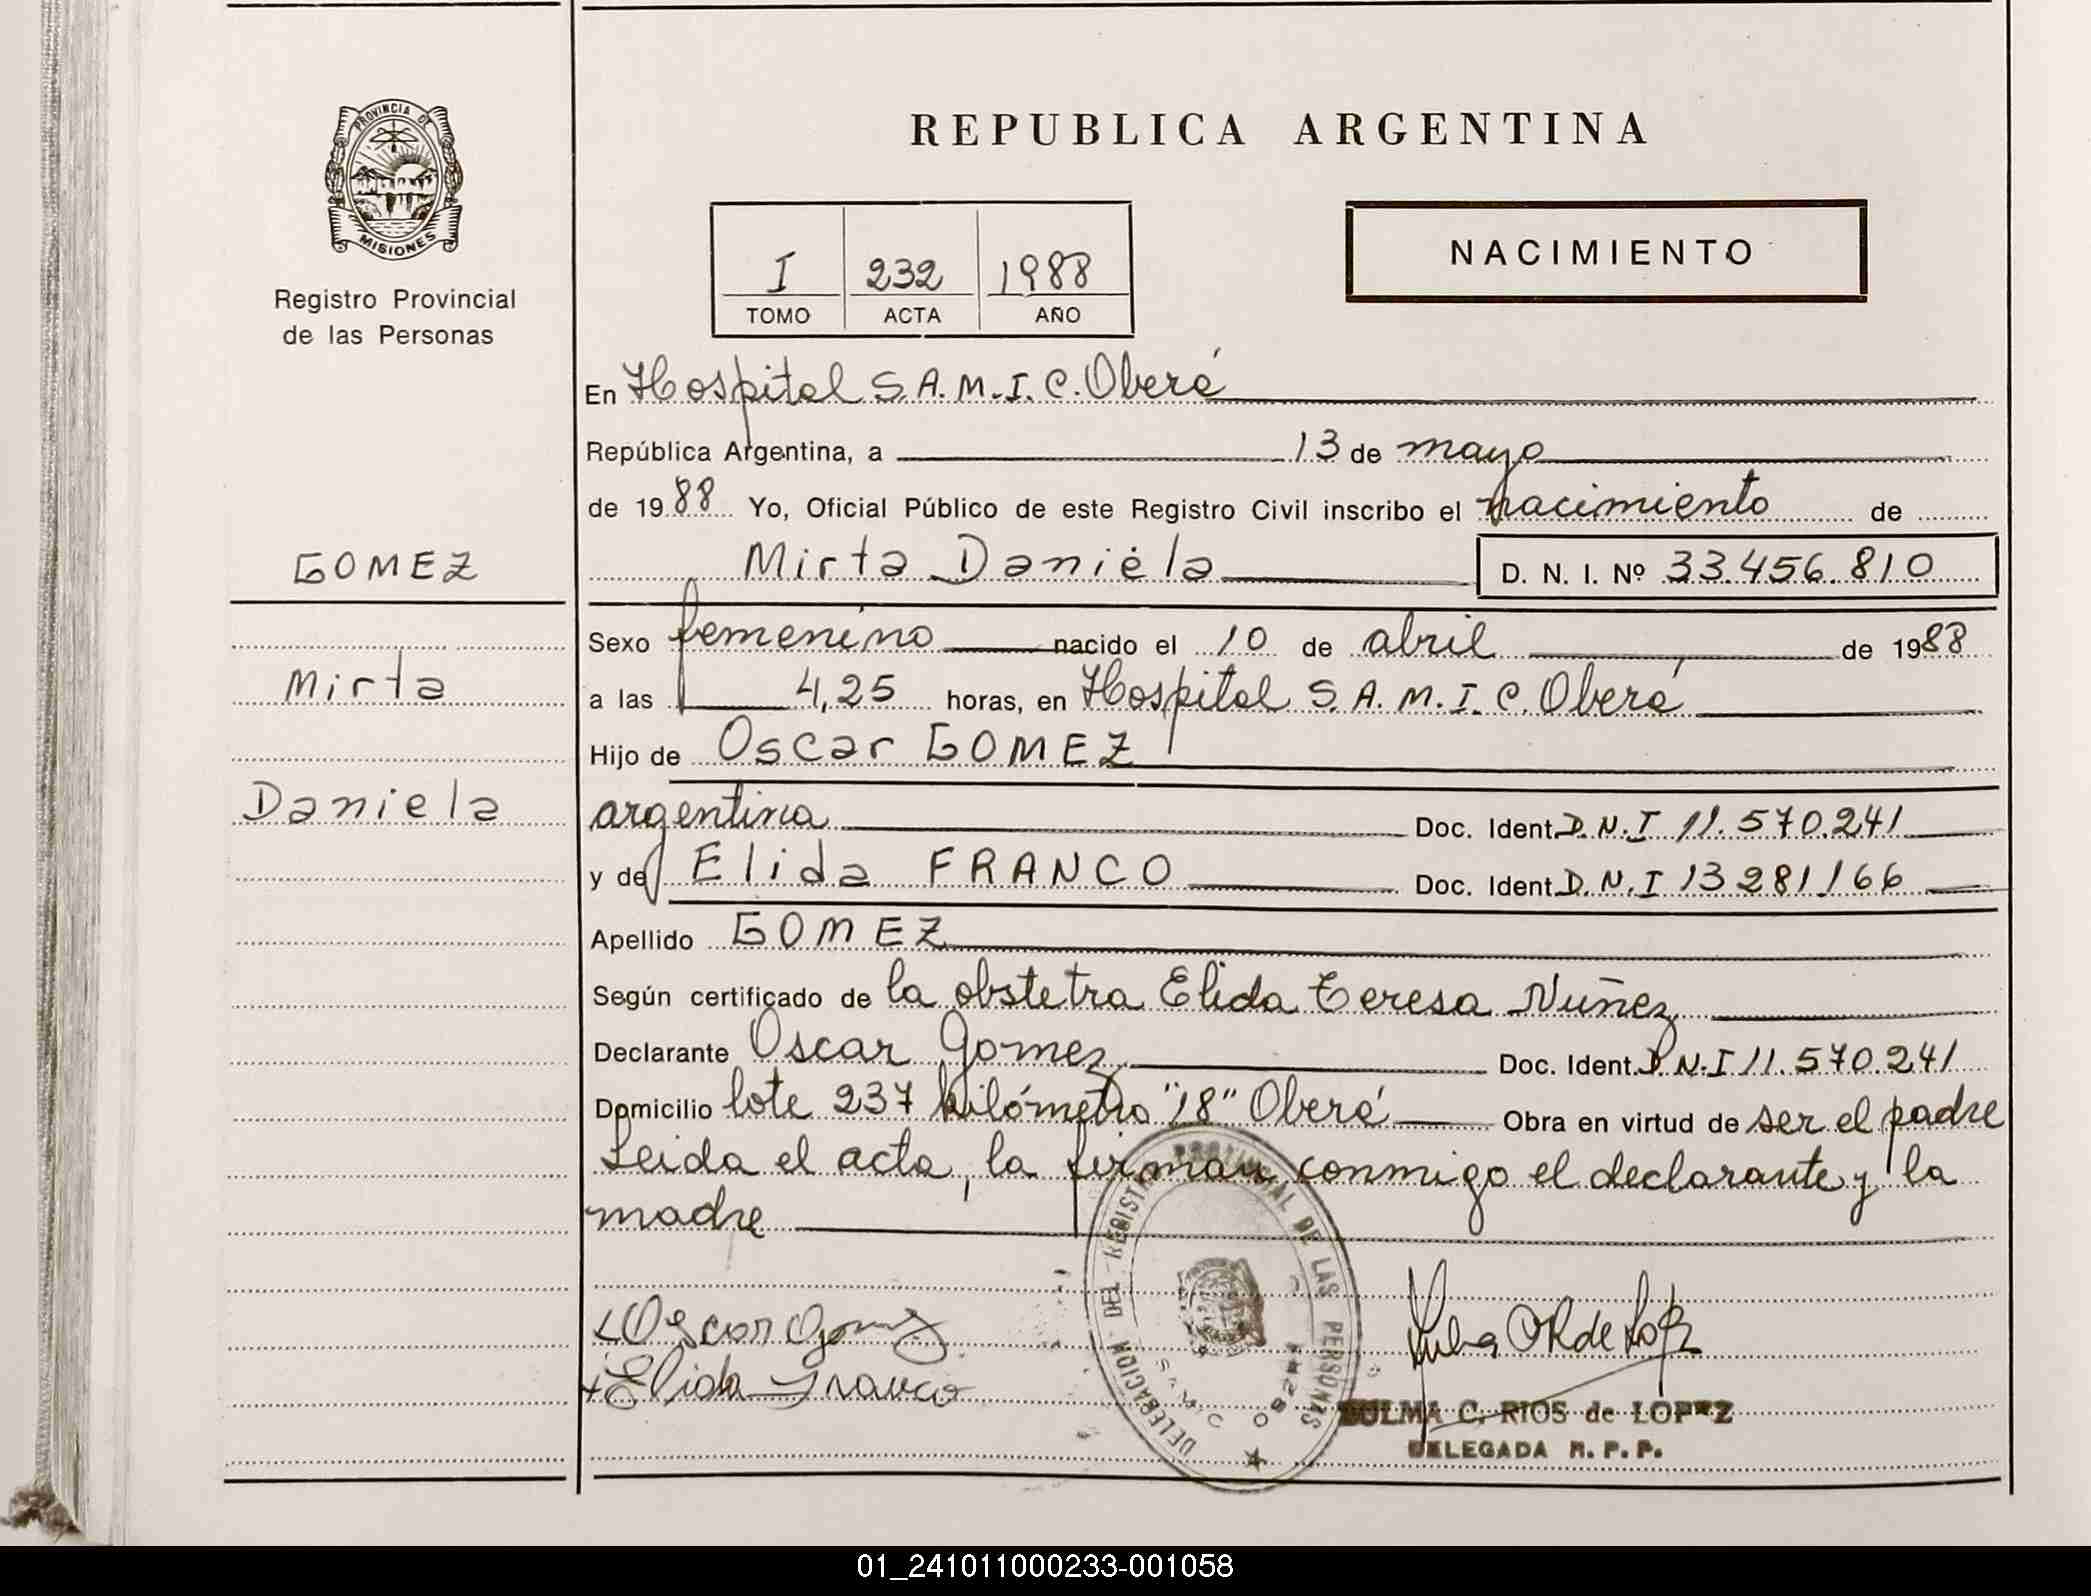 PROVINCIA DE
MISIONES
Registro Provincial
de las Personas
GOMEZ
Mirta
Daniela
REPUBLICA ARGENTINA
I 232 1988
TOMO ACTA AÑO
NACIMIENTO
En Hospital S.A.M.I.C. Oberá
República Argentina, a 13 de mayo
de 1988 Yo, Oficial Público de este Registro Civil inscribo el nacimiento de
Mirta Daniela D. N. I. Nº 33.456.810
Sexo femenino nacido el 10 de abril de 1988
a las 4,25 horas, en Hospital S.A.M.I.C. Oberá
Hijo de Oscar GOMEZ
argentina Doc. Ident. D.N.I 11.570.241
y de Elida FRANCO Doc. Ident. D.N.I 13281166
Apellido GOMEZ
Según certificado de la obstetra Elida Teresa Nuñez
Declarante Oscar Gomez Doc. Ident. D.N.I 11.570.241
Domicilio lote 237 kilómetro "18" Oberá Obra en virtud de ser el padre
Leida el acta, la firman conmigo el declarante y la
madre
DELEGACION DEL REGISTRO PROVINCIAL DE LAS PERSONAS
SAMIC OBERA
Oscar Gomez
Elida Franco
ZULMA C. RIOS de LOPEZ
DELEGADA R. P. P.
01_241011000233-001058